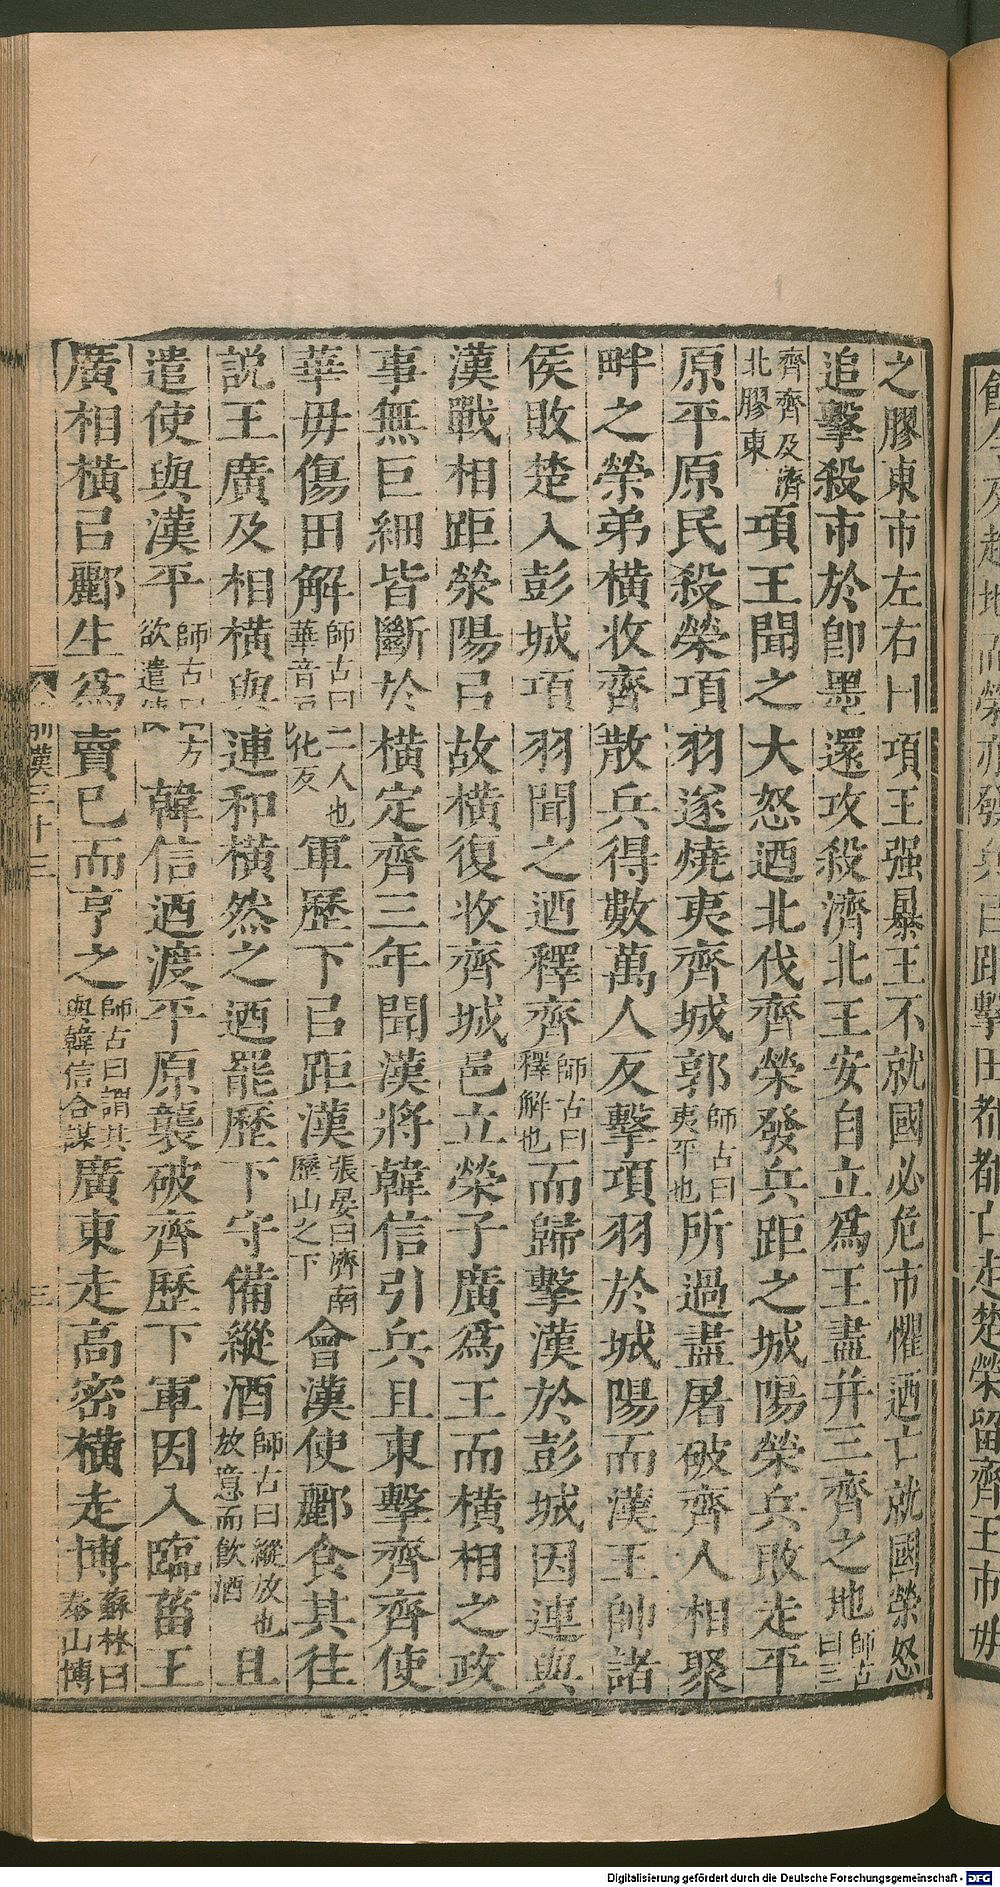 之膠東市左右曰項王强暴王不就國必危市懼迺亡就國榮怒
追擊殺市於卽墨還攻殺濟北王安自立爲王盡幷三齊之地師古曰三
齊齊及濟北膠東項王聞之大怒迺北伐齊榮發兵距之城陽榮兵敗走平
原平原民殺榮項羽遂燒夷齊城郭師古曰夷平也所過盡屠破齊人相聚
畔之榮弟橫收齊散兵得數萬人反擊項羽於城陽而漢王帥諸
侯敗楚入彭城項羽聞之迺釋齊師古曰釋解也而歸擊漢於彭城因連與
漢戰相距滎陽㠯故橫復收齊城邑立榮子廣爲王而橫相之政
事無巨細皆斷於橫定齊三年聞漢將韓信引兵且東擊齊齊使
華毋傷田解師古曰華音二人也化反軍歷下㠯距漢張晏曰濟南歷山之下會漢使酈食其往
説王廣及相橫與連和橫然之迺罷歷下守備縱酒師古曰縱放也放意而飮酒且
遣使與漢平師古曰方欲遣使韓信迺渡平原襲破齊歷下軍因入臨菑王
廣相橫㠯酈生爲賣已而亨之師古曰謂其與韓信合謀廣東走高密橫走博蘇林曰泰山博
前漢三十三
三
及趙地而榮亦發兵㠯距擊田都都亡走楚榮留齊王市毋
Digitalisierung gefördert durch die Deutsche Forschungsgemeinschaft - DFG